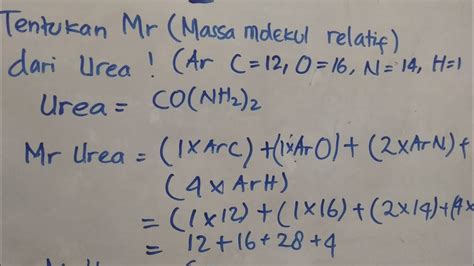 Tentukan Mr (Massa molekul relatif)
dari Urea ! (Ar C = 12, O = 16, N = 14, H = 1
Urea = CO(NH₂)₂
Mr Urea = (1 x Ar C) + (1 x Ar O) + (2 x Ar N) +
(4 x Ar H)
= (1 x 12) + (1 x 16) + (2 x 14) + (4 x
= 12 + 16 + 28 + 4